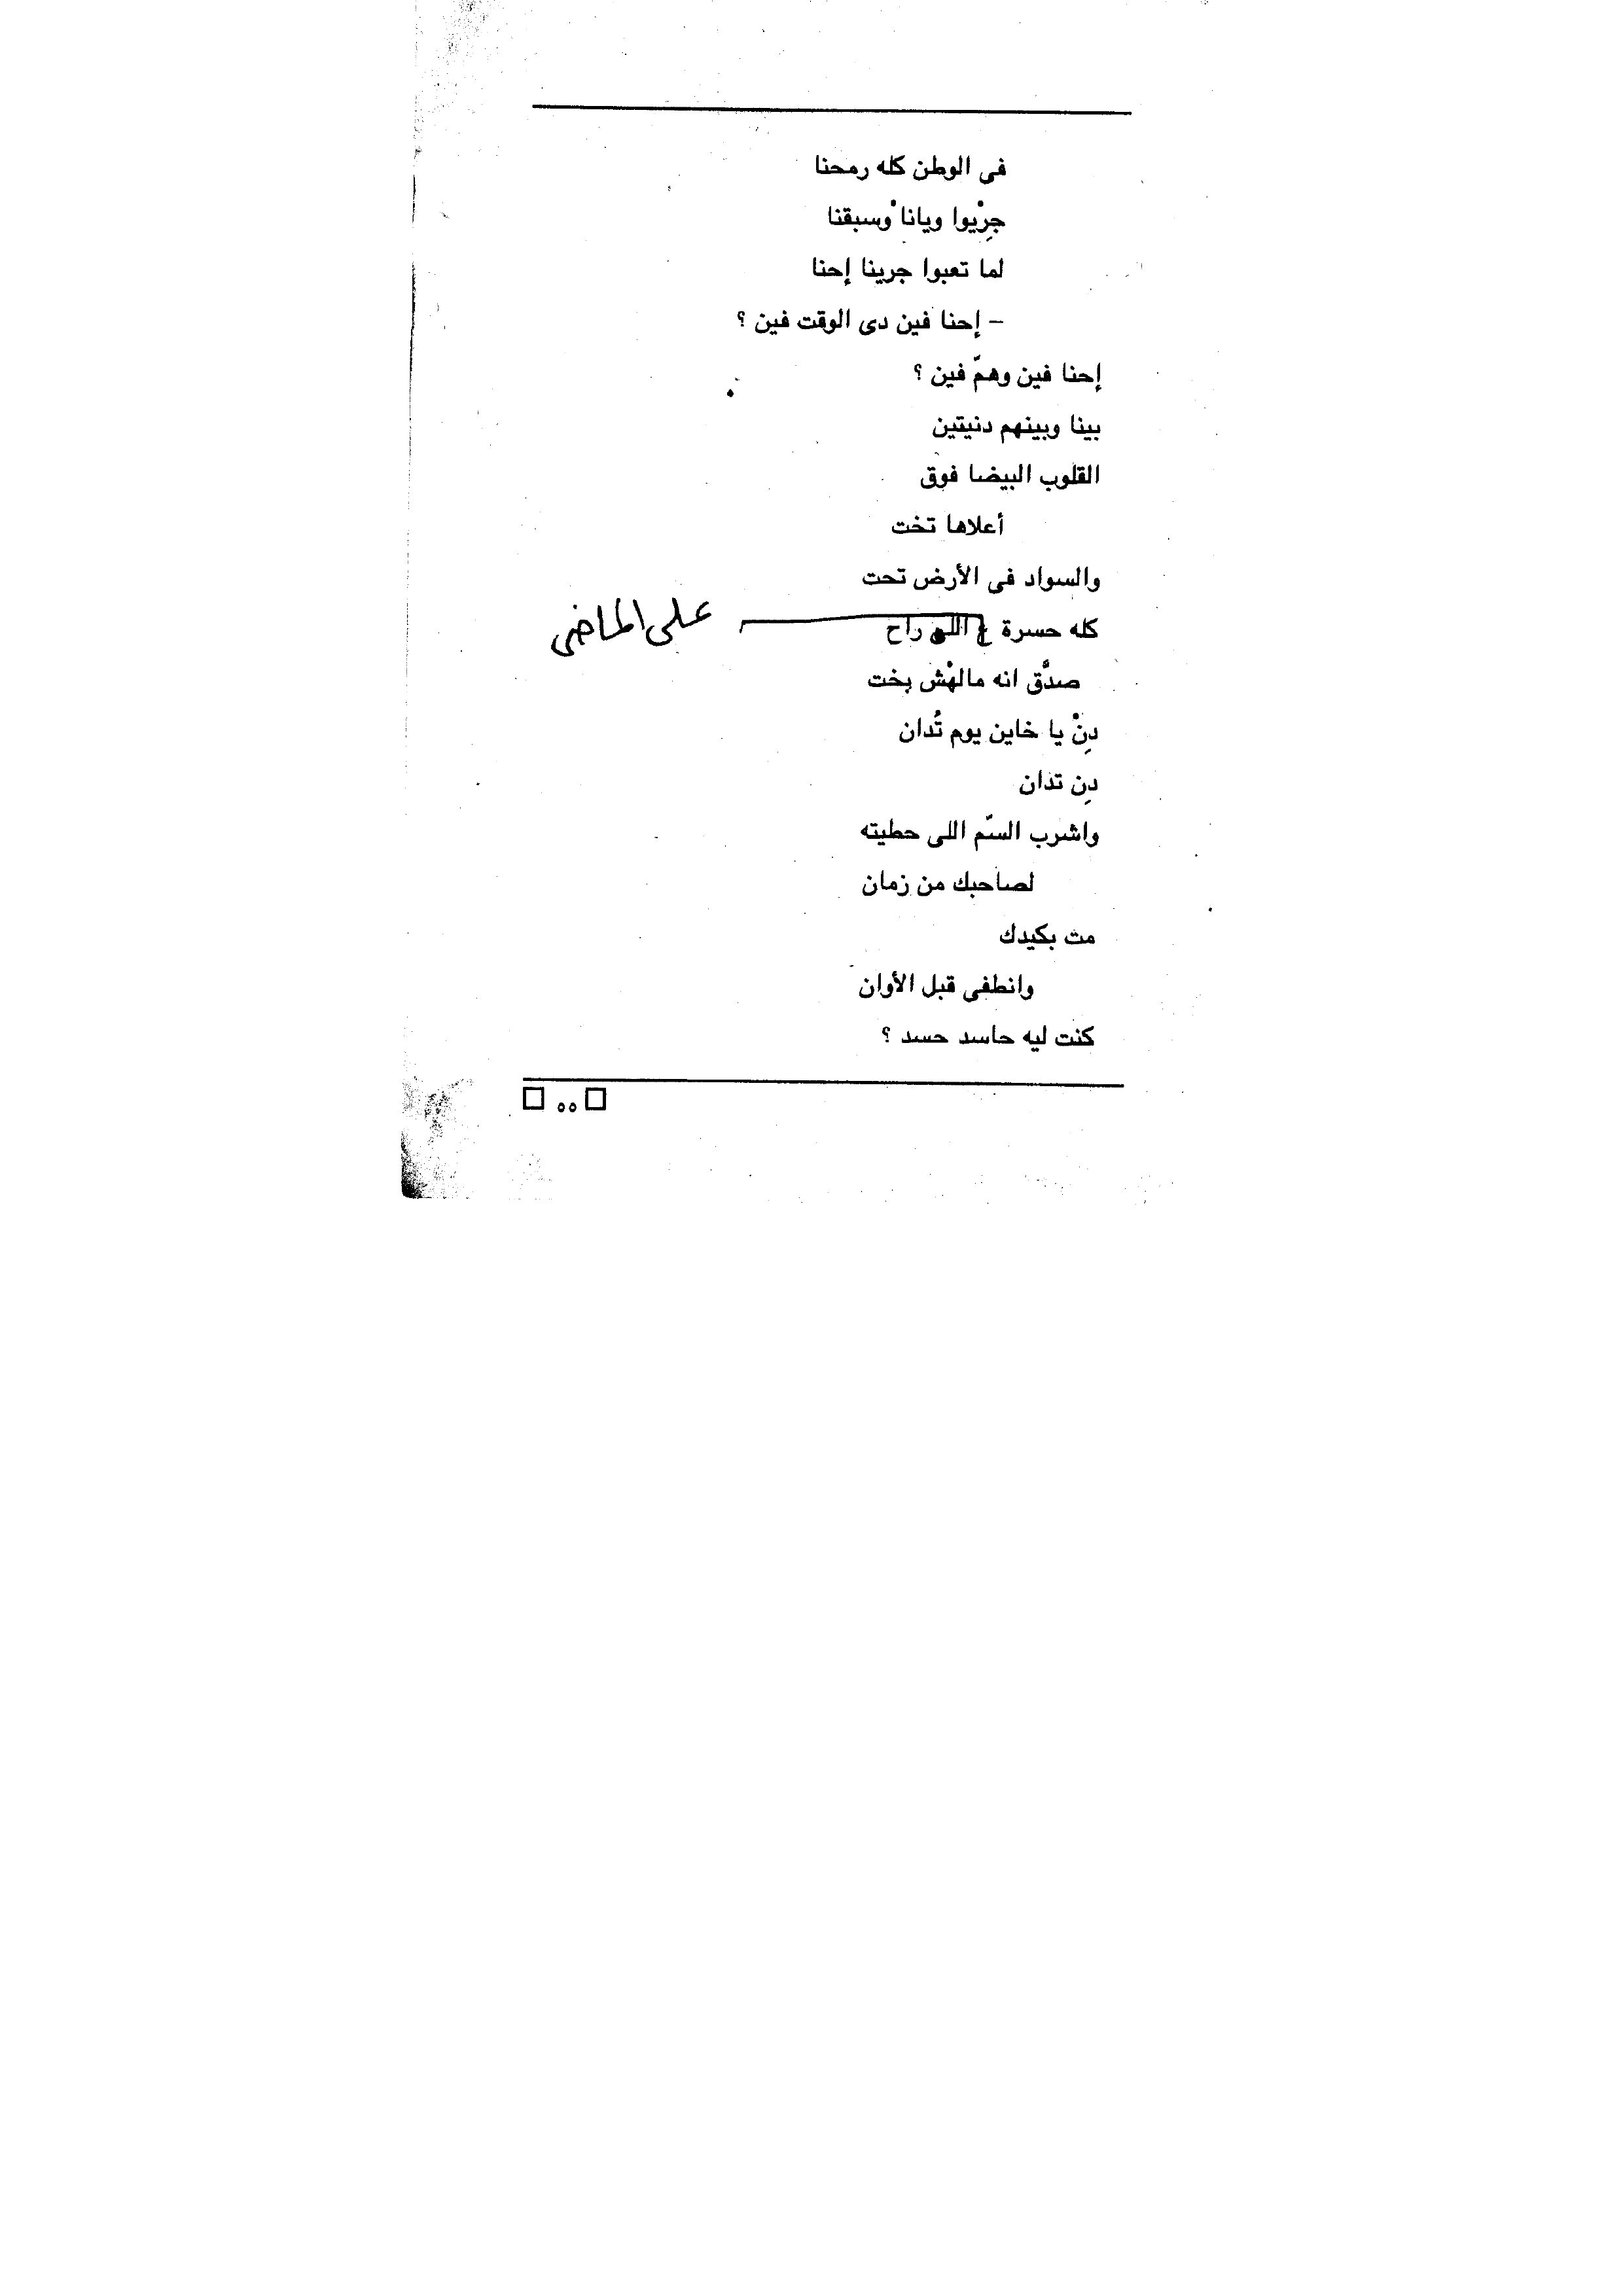 فى الوطن كله رمحنا
جرِيْوا ويانا ْوسبقنا
لما تعبوا جرينا إحنا
– إحنا فين دى الوقت فين ؟
إحنا فين وهمّ فين ؟
بينا وبينهم دنيتين
القلوب البيضا فوق
أعلاها تخت
والسواد فى الأرض تحت
كله حسرة ع اللى راح
على الماضى
صدَّق انه مالهْش بخت
دِنْ يا خاين يوم تُدان
دِن تدان
واشرب السّم اللى حطيته
لصاحبك من زمان
مت بكيدك
وانطفى قبل الأوان
كنت ليه حاسد حسد ؟
□ ٥٥ □